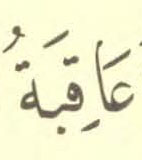 عَاقِبَةُ